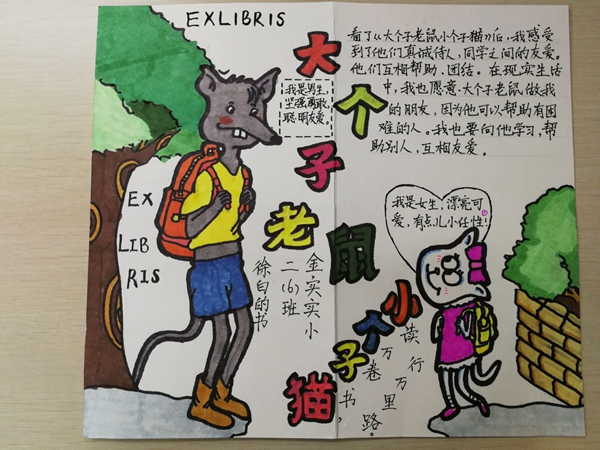 EXLIBRIS
大个子老鼠小个子猫
看了《大个子老鼠小个子猫》后,我感受
到了他们真诚待人,同学之间的友爱。
他们互相帮助、团结。在现实生活
中,我也愿意大个子老鼠做我
的朋友,因为他可以帮助有困
难的人。我也要向他学习,帮
助别人,互相友爱。
我是男生,
坚强勇敢,
聪明友爱。
EX
LIB
RIS
我是女生,漂亮可
爱,有点儿小任性!
金实实小
二(6)班
徐白的书
读万卷书,
行万里路。